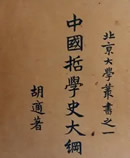 北京大學叢書之一
中國哲學史大綱
胡適著